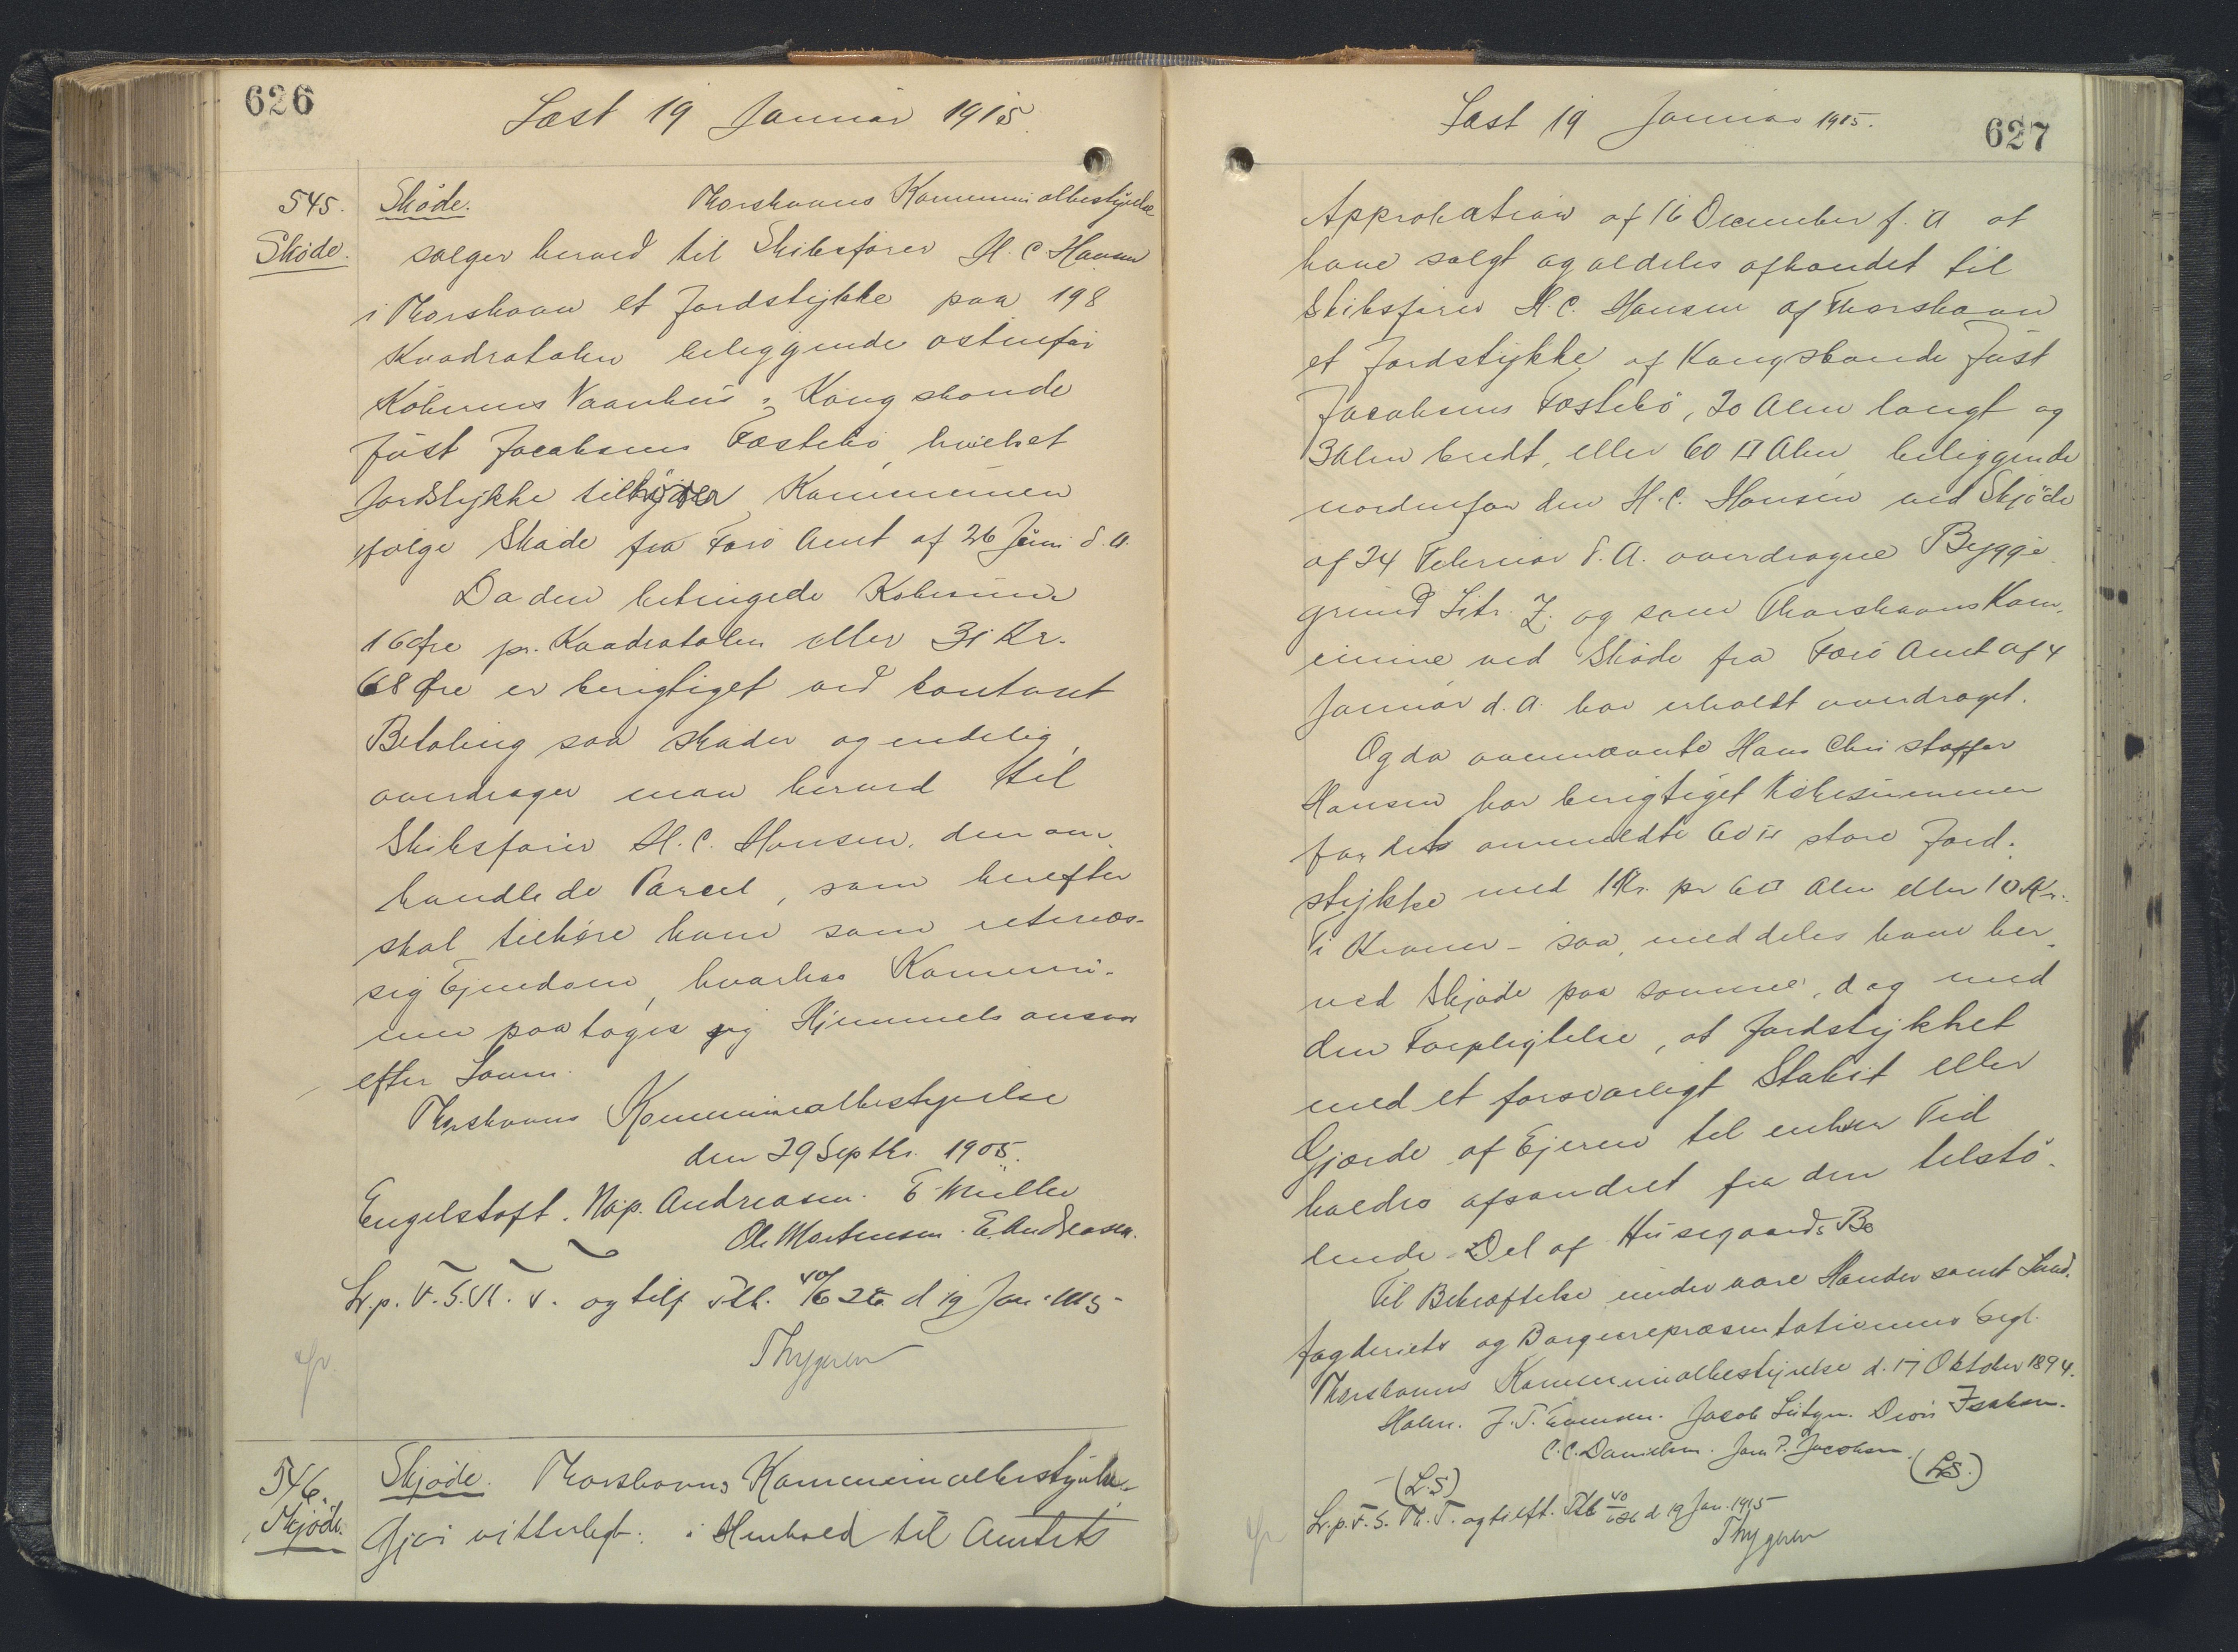 626
Læst 19 Januar 1915.
545. Skøde. Thorshavns Kommunalbestyrelse
Skøde. sælger herved til Skibsfører H. C Hansen
i Thorshavn et Jordstykke paa 198
Kvadratalen beliggende østenfor
Køberens Vaanhus i Kongsbonde
Just Jacobsens Fæstebø, hvilket
Jordstykke tilhører Kommunen
ifølge Skøde fra Færø Amt af 26 Juni d. A.
Da den betingede Købesum
16 Øre pr. Kvadratalen eller 31 Kr.
68 Øre er berigtiget ved kontant
Betaling saa skøder og endelig
overdrager man herved til
Skibsfører H. C. Hansen, den om-
handlede Parcel, som herefter
skal tilhøre ham som retmæs-
sig Ejendom, hvorhos Kommu-
nen paatager sig Hjemmels ansvar
efter Loven.
Thorshavns Kommunalbestyrelse
den 29 Septbr. 1905.
Engelstoft. Nap. Andreasen. E Müller
Ole Mortensen. E. Andreasen.
Lr. p. F. S. Th. T. og tilf. Ptb. d 19 Jan. 1915
Thygesen
546. Skjøde. Thorshavns Kommunalbestyrelse
Skjøde. Gjør vitterligt: i Henhold til Amtets
Læst 19 Januar 1915.
627
Approbation af 16 December f. A at
have solgt og aldeles afhændet til
Skibsfører H. C. Hansen af Thorshavn
et Jordstykke af Kongsbonde Just
Jacobsens Fæstebø, 20 Alen langt og
3 Alen bredt, eller 60 □ Alen beliggende
nordenfor den H. C. Hansen ved Skjøde
af 24 Februar d. A. overdragne Bygge-
grund Litr. Z. og som Thorshavns Kom-
mune ved Skøde fra Færø Amt af 4
Januar d. A. har erholdt overdraget.
Og da ovennævnte Hans Christoffer
Hansen har berigtiget Købesummen
for det ommeldte 60 □ store Jord-
stykke med 1 Kr. pr 6 □ Alen eller 10 Kr.
Ti Kroner - saa meddeles ham her-
ved Skjøde paa samme, dog med
den Forpligtelse, at Jordstykket
med et forsvarligt Stakit eller
Gjærde af Ejeren til enhver Tid
holdes afsondret fra den tilstø-
dende Del af Husegaards Bø
Til Bekræftelse under vore Hænder samt Land-
fogderiets og Borgerrepræsentationens Segl.
Thorshavns Kommunalbestyrelse d. 17 Oktober 1894.
Holm. Jacob Lützen. Isaksen.
C. C. Danielsen. Jacobsen.
(L. S) (L. S.)
Lr. p. F. S. Th. T. og tilft. Ptb d 19 Jan. 1915
Thygesen